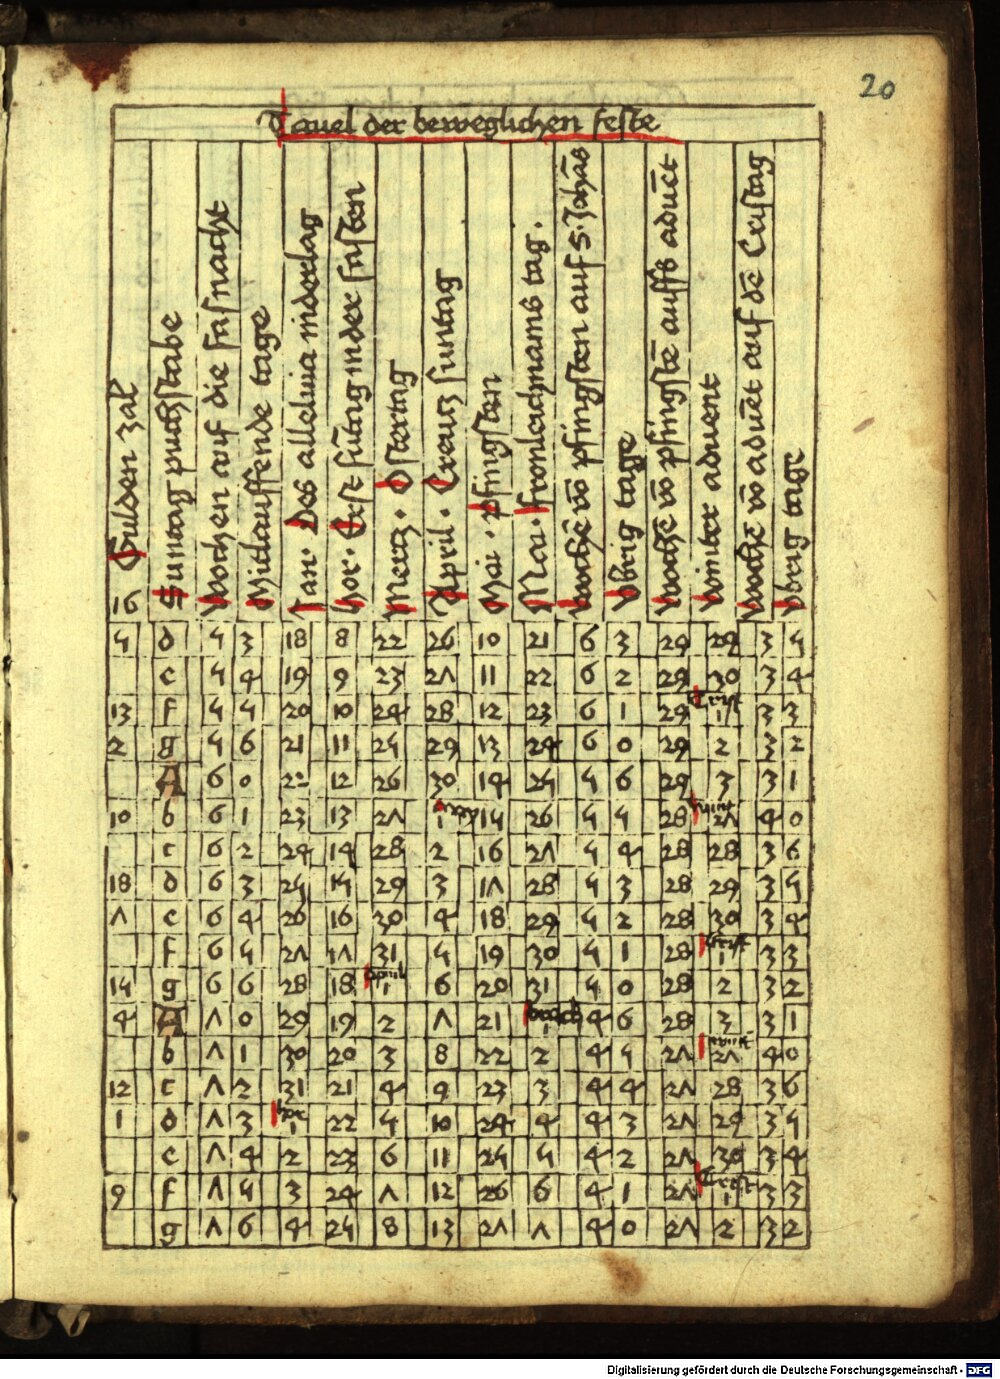 20
Tauel der beweglichen feste
16 Gulden zal
Suntag puchstabe
Wochen auf die fasnacht
Mitlauffende tage
Jan. Des alleluia niderlag
Hor. Erst sūtag in der fasten
Mertz. Ostertag
April. Creutz suntag
Mai. pfingsten
Mai. fronleichnams tag.
Wochē vō pfingsten auf S. Johās
Vbrig tage
Wochē vō pfingstē auffs aduēt
Winter aduent
Wochē vō aduēt auf dē Cristag
Vbrig tage
5 d 5 3 18 8 22 26 10 21 6 3 29 29 3 5
e 5 4 19 9 23 27 11 22 6 2 29 30 3 4
13 f 5 5 20 10 24 28 12 23 6 1 29 Crist 1 3 3
2 g 5 6 21 11 25 29 13 24 6 0 29 2 3 2
A 6 0 22 12 26 30 14 25 5 6 29 3 3 1
10 b 6 1 23 13 27 may 1 15 26 5 5 28 wint 27 4 0
c 6 2 24 14 28 2 16 27 5 4 28 28 3 6
18 d 6 3 25 15 29 3 17 28 5 3 28 29 3 5
7 e 6 4 26 16 30 4 18 29 5 2 28 30 3 4
f 6 5 27 17 31 5 19 30 5 1 28 Crist 1 3 3
15 g 6 6 28 18 april 1 6 20 31 5 0 28 2 3 2
4 A 7 0 29 19 2 7 21 brach 1 4 6 28 3 3 1
b 7 1 30 20 3 8 22 2 4 5 27 wint 27 4 0
12 c 7 2 31 21 4 9 23 3 4 4 27 28 3 6
1 d 7 3 hor 1 22 5 10 24 4 4 3 27 29 3 5
e 7 4 2 23 6 11 25 5 4 2 27 30 3 4
9 f 7 5 3 24 7 12 26 6 4 1 27 Crist 1 3 3
g 7 6 4 25 8 13 27 7 4 0 27 2 3 2
Digitalisierung gefördert durch die Deutsche Forschungsgemeinschaft - DFG